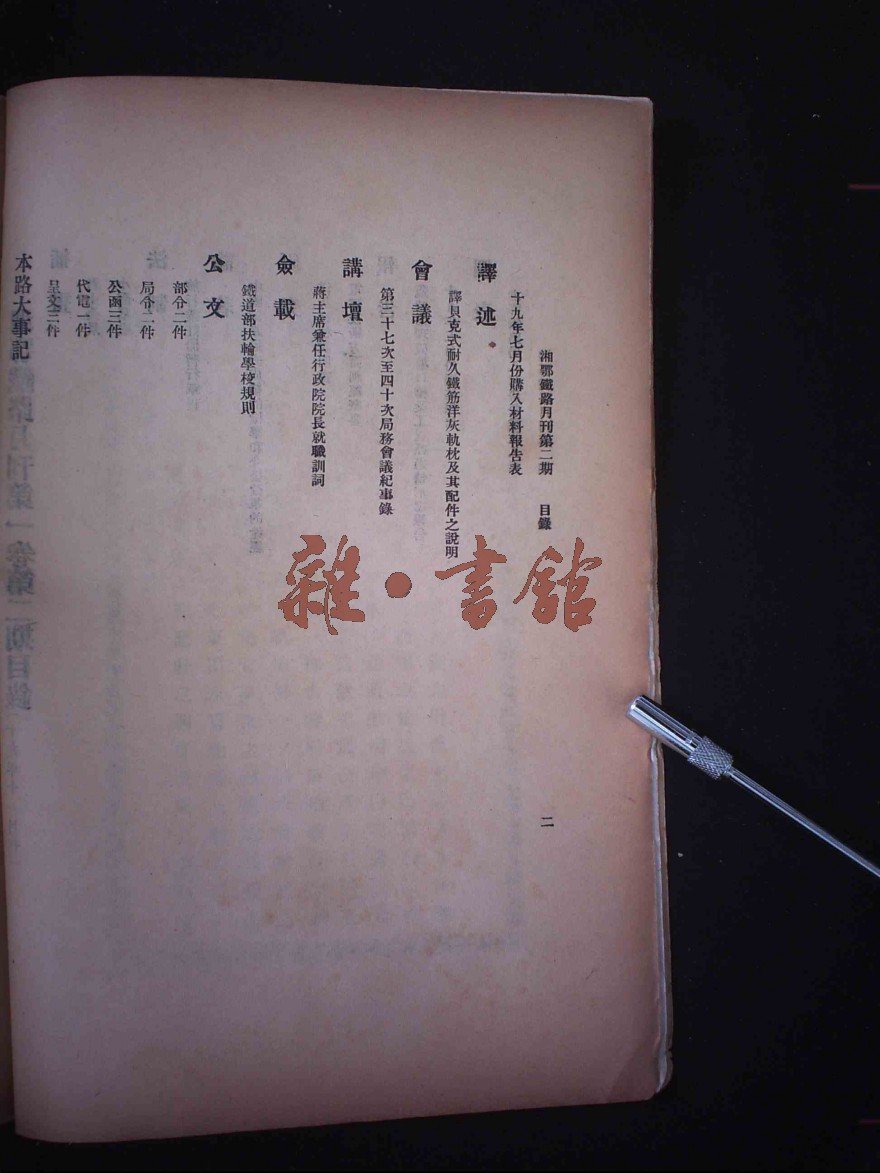 湘鄂鐵路月刊第二期　目錄　二
十九年七月份購入材料報告表
譯述
譯貝克式耐久鐵筋洋灰軌枕及其配件之說明
會議
第三十七次至四十次局務會議紀事錄
講壇
蔣主席兼任行政院院長就職訓詞
僉載
鐵道部扶輪學校規則
公文
部令二件
局令二件
公函三件
代電一件
呈文三件
本路大事記
雜·書館